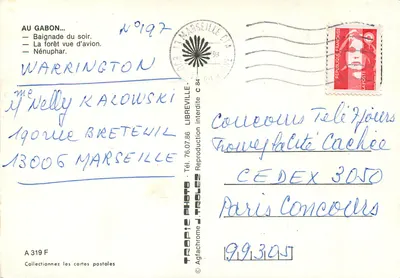 AU GABON...
— Baignade du soir.
— La forêt vue d'avion.
— Nénuphar.
N°197
WARRINGTON
Mme Nelly KALOWSKI
190 rue BRETEUIL
13006 MARSEILLE
A 319 F
Collectionnez les cartes postales
TROPIC PHOTO - Tél. 76.07.86 LIBREVILLE -
© Agfachrome J. TROLEZ
Reproduction interdite C 84
MARSEILLE
Concours Télé 7 Jours
Trouvez la Cité Cachée
CEDEX 3050
Paris Concours
99305